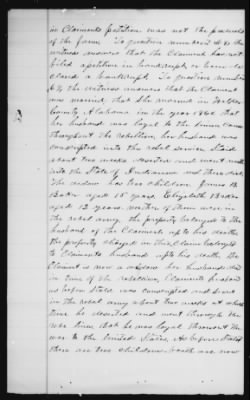 in Claimants petition was not the products
of the farm. To question number 45 & the
witness answers that the Claimant has not
filed a petition in bankruptcy, or been de-
clared a bankrupt. To question number
6 the witness answers that the Claimant
was married, that She married in
County, Alabama in the year 1860 that
her husband was loyal to the Union Cause
throughout the rebellion, her husband was
conscripted into the rebel service Staid
about two weeks deserted and went north
into the State of Indiana and there died.
The widow has two children James B
aged 15 years Elizabeth
aged 12 years, neither of them were in
the rebel army the property belonged to the
husband of the Claimant up to his death,
the property charged in this Claim belonged
to Claimants husband up to his death, The
Claimant is now a widow her husband died
in time of the rebellion, Claimants husband
as before Stated was conscripted and Served
in the rebel army about two weeks at which
time he deserted and went through the
lines that he was loyal throughout the
war to the United States, As before stated
there are two children both are now